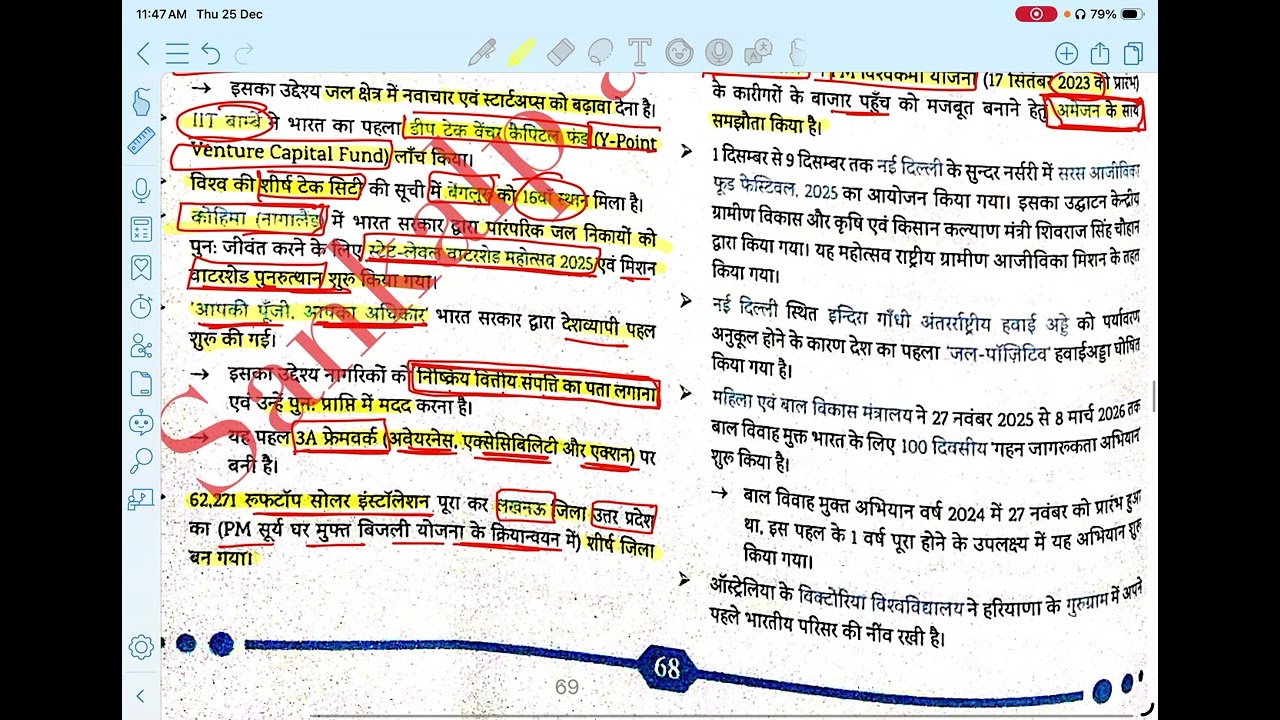 11:47 AM Thu 25 Dec
79%
→ इसका उद्देश्य जल क्षेत्र में नवाचार एवं स्टार्टअप्स को बढ़ावा देना है।
IIT बाम्बे ने भारत का पहला डीप टेक वेंचर कैपिटल फंड (Y-Point
Venture Capital Fund) लॉंच किया।
विश्व की शीर्ष टेक सिटी की सूची में बेंगलुरु को 16वाँ स्थान मिला है।
कोहिमा (नागालैंड) में भारत सरकार द्वारा पारंपरिक जल निकायों को
पुनः जीवंत करने के लिए स्टेट-लेवल वाटरशेड महोत्सव 2025 एवं मिशन
वाटरशेड पुनरुत्थान शुरू किया गया।
'आपकी पूँजी, आपका अधिकार' भारत सरकार द्वारा देशव्यापी पहल
शुरू की गई।
→ इसका उद्देश्य नागरिकों को निष्क्रिय वित्तीय संपत्ति का पता लगाना
एवं उन्हें पुनः प्राप्ति में मदद करना है।
→ यह पहल 3A फ्रेमवर्क (अवेयरनेस, एक्सेसिबिलिटी और एक्शन) पर
बनी है।
62,271 रूफटॉप सोलर इंस्टॉलेशन पूरा कर लखनऊ जिला उत्तर प्रदेश
का (PM सूर्य घर मुफ्त बिजली योजना के क्रियान्वयन में) शीर्ष जिला
बन गया।
PM विश्वकर्मा योजना (17 सितंबर 2023 को प्रारंभ)
के कारीगरों के बाजार पहुँच को मजबूत बनाने हेतु अमेजन के साथ
समझौता किया है।
➤ 1 दिसम्बर से 9 दिसम्बर तक नई दिल्ली के सुन्दर नर्सरी में सरस आजीविका
फूड फेस्टिवल, 2025 का आयोजन किया गया। इसका उद्घाटन केन्द्रीय
ग्रामीण विकास और कृषि एवं किसान कल्याण मंत्री शिवराज सिंह चौहान
द्वारा किया गया। यह महोत्सव राष्ट्रीय ग्रामीण आजीविका मिशन के तहत
किया गया।
➤ नई दिल्ली स्थित इन्दिरा गाँधी अंतरर्राष्ट्रीय हवाई अड्डे को पर्यावरण
अनुकूल होने के कारण देश का पहला 'जल-पॉज़िटिव' हवाईअड्डा घोषित
किया गया है।
➤ महिला एवं बाल विकास मंत्रालय ने 27 नवंबर 2025 से 8 मार्च 2026 तक
बाल विवाह मुक्त भारत के लिए 100 दिवसीय 'गहन जागरूकता अभियान
शुरू किया है।
→ बाल विवाह मुक्त अभियान वर्ष 2024 में 27 नवंबर को प्रारंभ हुआ
था, इस पहल के 1 वर्ष पूरा होने के उपलक्ष्य में यह अभियान शुरू
किया गया।
➤ ऑस्ट्रेलिया के विक्टोरिया विश्वविद्यालय ने हरियाणा के गुरुग्राम में अपने
पहले भारतीय परिसर की नींव रखी है।
68
69
Sankalp